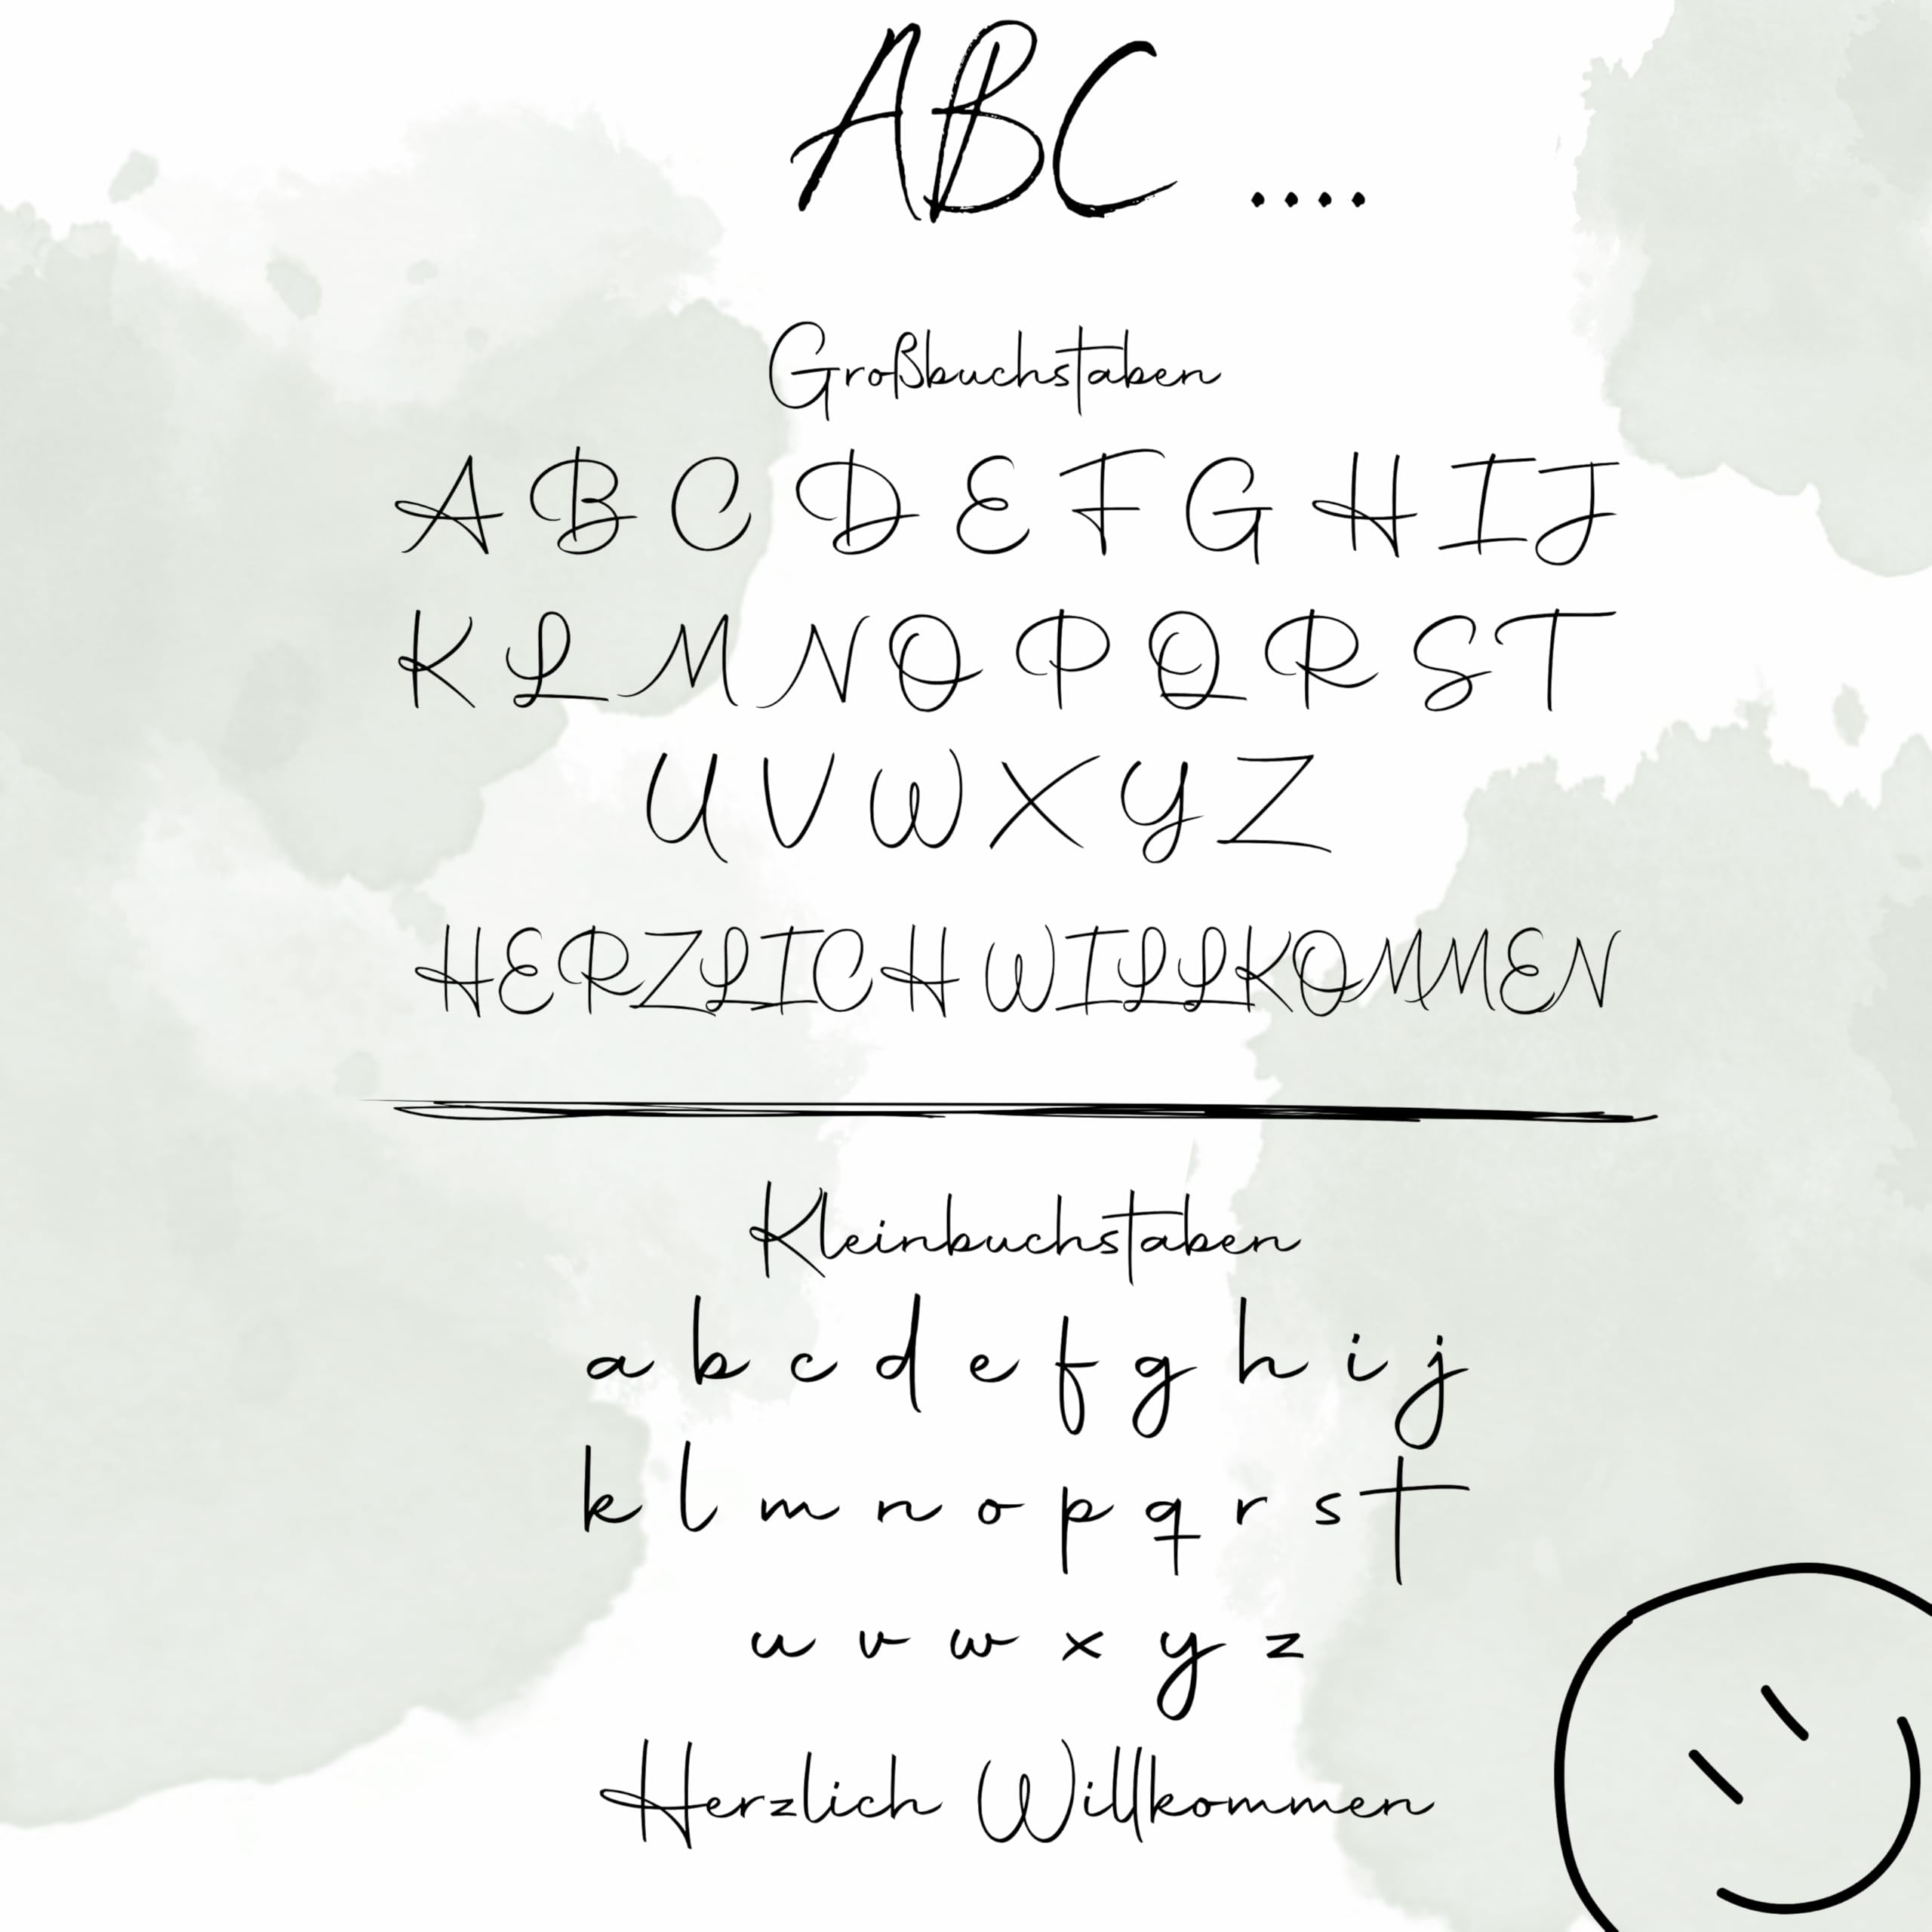 ABC ....
Großbuchstaben
A B C D E F G H I J
K L M N O P Q R S T
U V W X Y Z
HERZLICH WILLKOMMEN
Kleinbuchstaben
a b c d e f g h i j
k l m n o p q r s t
u v w x y z
Herzlich Willkommen